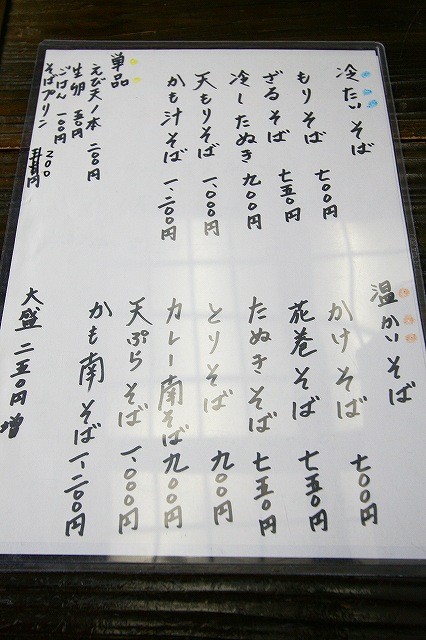 冷たいそば
もりそば 七〇〇円
ざるそば 七五〇円
冷したぬき 九〇〇円
天もりそば 一、〇〇〇円
かも汁そば 一、二〇〇円
単品
えび天ノ本 二〇〇円
生卵 五〇円
ごはん 一〇〇円
そばプリン 200円
温かいそば
かけそば 七〇〇円
花巻そば 七五〇円
たぬきそば 七五〇円
とりそば 九〇〇円
カレー南そば 九〇〇円
天ぷらそば 一、〇〇〇円
かも南そば 一、二〇〇円
大盛 二五〇円増